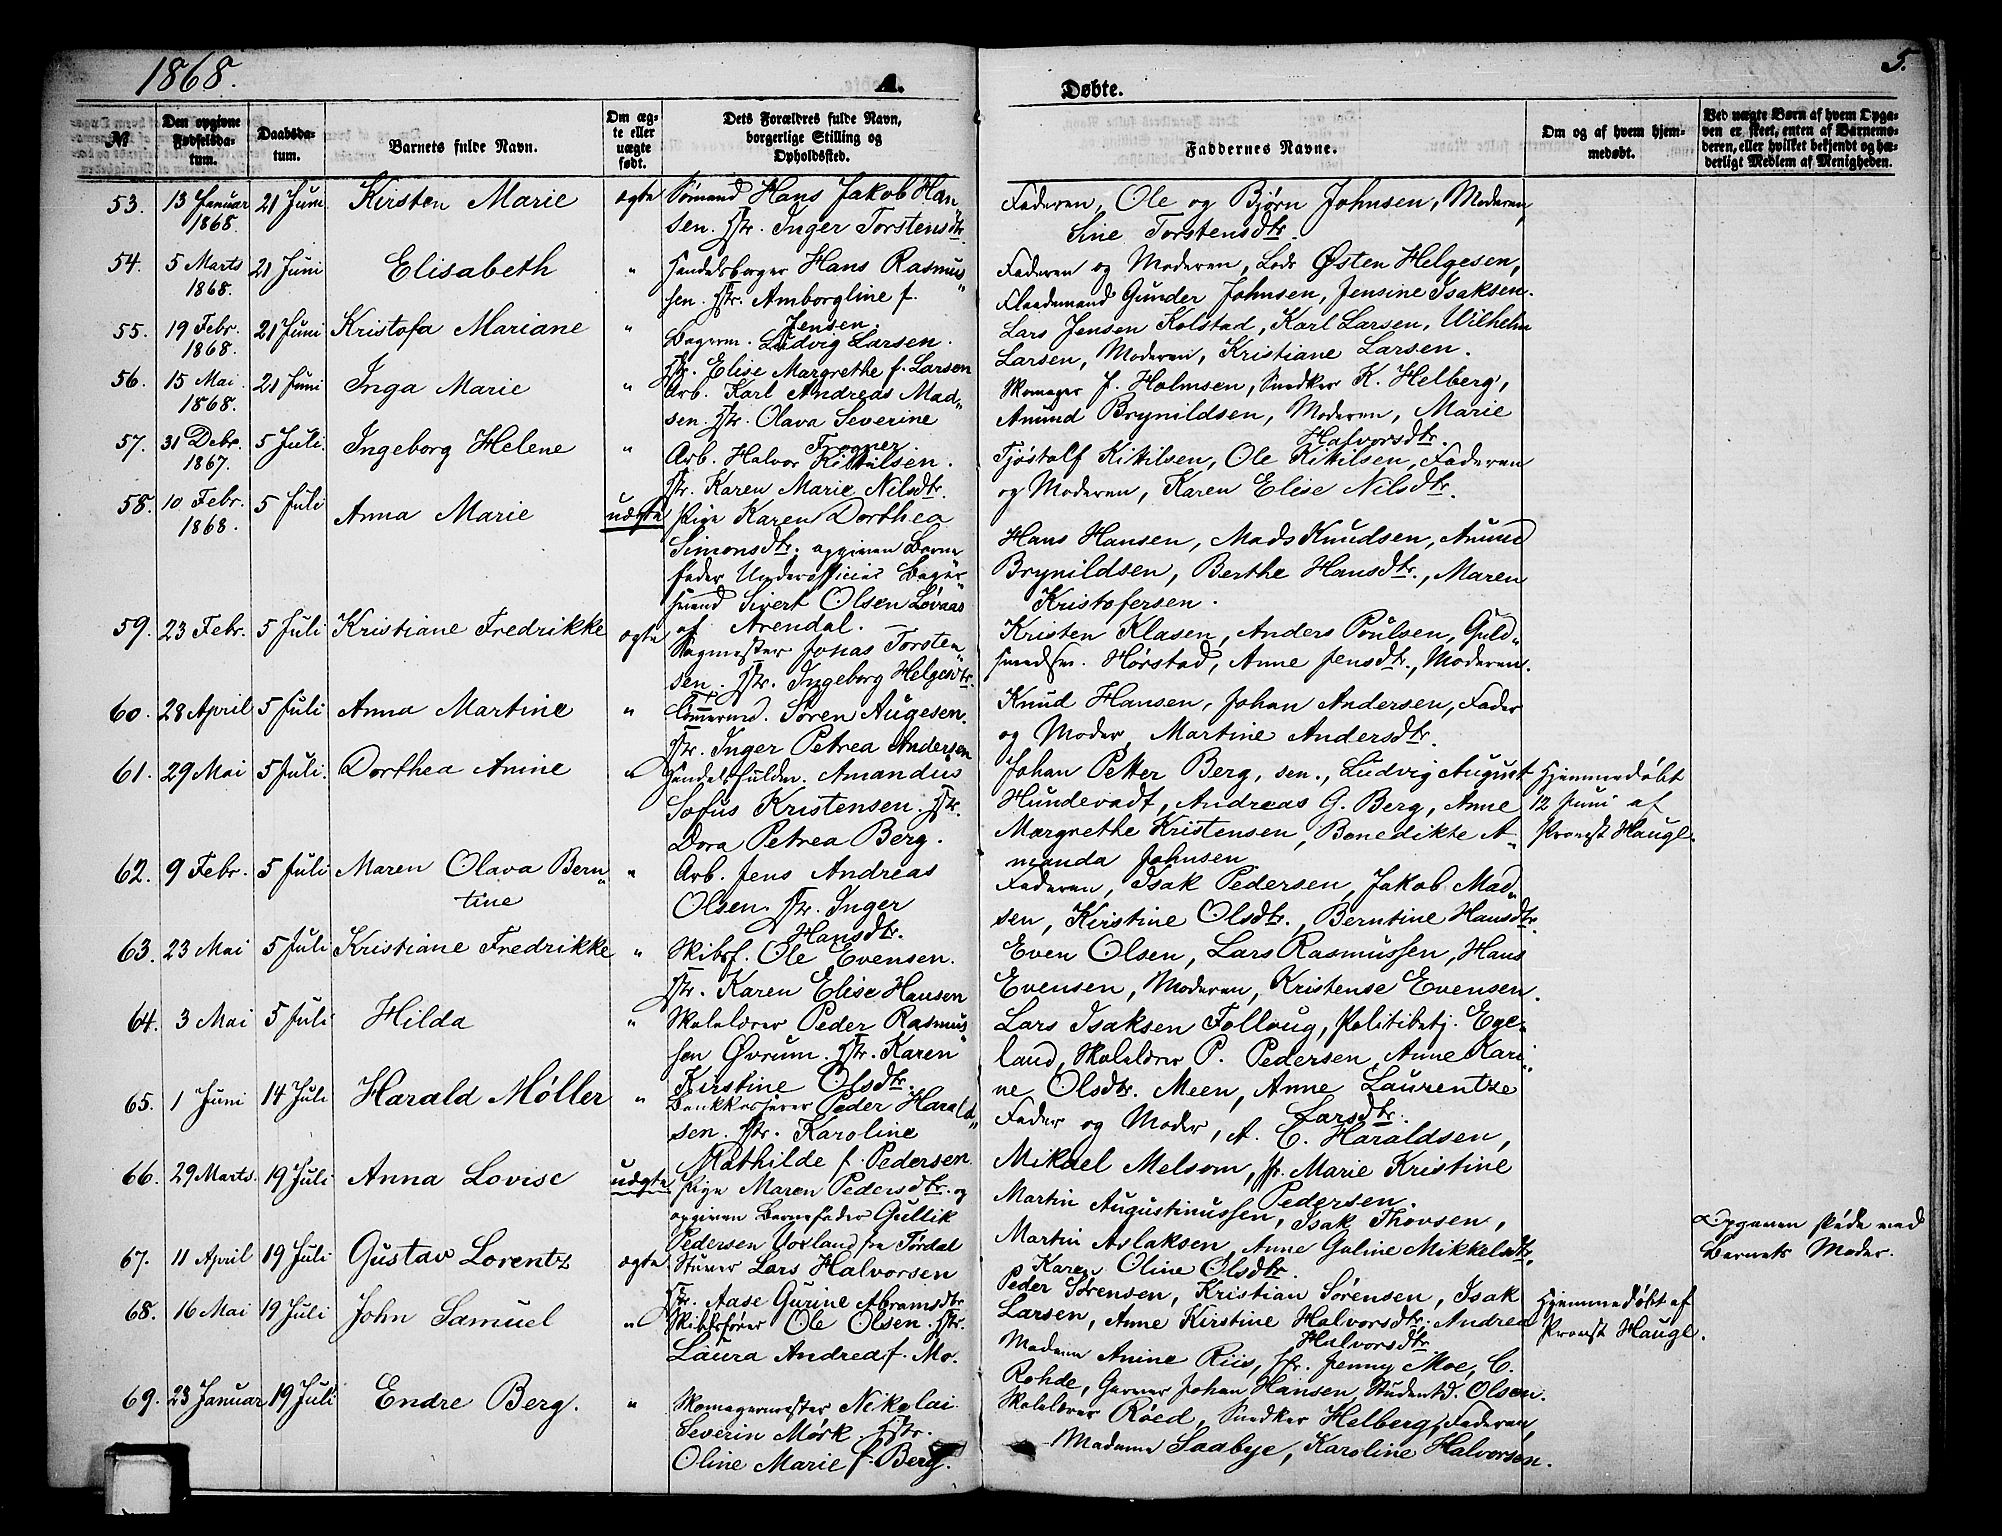 1868.
A.
Døbte.
5.
№
Den opgivne Fødselsdatum.
Daabsdatum.
Barnets fulde Navn.
Om ægte eller uægte født.
Dets Forældres fulde Navn, borgerlige Stilling og Opholdssted.
Faddernes Navne.
Om og af hvem hjemmedøbt.
Ved uægte Børn af hvem Opgaven er skeet, enten af Barnemoderen, eller hvilket bekjendt og hæderligt Medlem af Menigheden.
53. 13 Januar 1868. 21 Juni Kirsten Marie ægte Sømand Hans Jakob Han„
sen. Hstr. Inger Torstensdtr.
Faderen, Ole og Bjørn Johnsen, Moderen,
Sine Torstensdtr.
54. 5 Marts 1868. 21 Juni Elisabeth „ Handelsborger Hans Rasmus„
sen. Hstr. Amborgline f.
Jensen.
Faderen og Moderen, Lods Østen Helgesen,
Gunder Johnsen, Jensine Isaksen.
55. 19 Febr. 1868. 21 Juni Kristofa Mariane „ Bagerm. Ludvig Larsen.
Hstr. Elise Margrethe f. Larsen
Lars Jensen Kolstad, Karl Larsen, Wilhelm
Larsen, Moderen, Kristiane Larsen.
56. 15 Mai 1868. 21 Juni Inga Marie „ Arb. Karl Andreas Mad„
sen. Hstr. Olava Severine
Frogner.
Skomager J. Holmsen, Snedker K. Helberg,
Anund Brynildsen, Moderen, Marie
Halvorsdtr.
57. 31 Debr. 1867. 5 Juli. Ingeborg Helene „ Arb. Halvor Kittilsen.
Hstr. Karen Marie Nilsdtr.
Tjøstolf Kittilsen, Ole Kittilsen, Faderen
og Moderen, Karen Elise Nilsdtr.
58. 10 Febr. 1868. 5 Juli Anna Marie uægte Pige Karen Dorthea
Simonsdtr. opgiven Barne
fader Underofficier Bager
svend Sivert Olsen Løvaas
af Arendal.
Hans Hansen, Mads Knudsen, Anund
Brynildsen, Berthe Hansdtr., Maren
Kristofersen.
59. 23 Febr. 5 Juli Kristiane Fredrikke ægte Sagmester Jonas Torsten„
sen. Hstr. Ingeborg Helgesdtr.
Kristen Klasen, Anders Poulsen, Guld„
smedsv. Hørstad, Anne Jensdtr., Moderen.
60. 28 April 5 Juli Anna Martine „ Tømmermd. Søren Augesen.
Hstr. Inger Petrea Andersen
Knud Hansen, Johan Andersen, Fader
og Moder, Martine Andersdtr.
61. 29 Mai 5 Juli. Dorthea Amine „ Handelsfuldm. Amandus
Sofus Kristensen. Hstr.
Dora Petrea Berg.
Johan Petter Berg, sen., Ludvig August
Hundevadt, Andreas G. Berg, Anne
Margrethe Kristensen, Benedikte A„
manda Johnsen
Hjemmedøbt
12 Juni af
Provst Haugl.
62. 9 Febr. 5 Juli Maren Olava Bern„
tine „ Arb. Jens Andreas
Olsen. Hstr. Inger
Hansdtr.
Faderen, Isak Pedersen, Jakob Mad„
sen, Kirstine Olsdtr., Berntine Hansdtr.
63. 23 Mai 5 Juli Kristiane Fredrikke „ Skibsf. Ole Evensen.
Hstr. Karen Elise Hansen
Even Olsen, Lars Rasmussen, Hans
Evensen, Moderen, Kristense Evensen.
64. 3 Mai 5 Juli Hilda „ Skolelærer Peder Rasmus„
sen Øvrum. Hstr. Karen
Kirstine Olsdtr.
Lars Isaksen Follaug, Politibetj. Ege„
land, Skolelærer P. Pedersen, Anne Kari„
ne Olsdtr. Meen, Anne Laurentze
Larsdtr.
65. 1 Juni 14 Juli Harald Møller „ Bankkasserer Peder Harald„
sen. Hstr. Karoline
Mathilde f. Pedersen.
Fader og Moder, A. C. Haraldsen,
Mikael Melsom, Jr. Marie Kristine
Pedersen.
66. 29 Marts. 19 Juli Anna Lovise uægte Pige Maren Pedersdtr. og
opgiven Barnefader Gullik
Pedersen fra Tørdal
Martin Augustinussen, Isak Thovsen,
Martin Aslaksen, Anne Galine Mikkelsdtr.
Karen Oline Olsdtr.
Opgaven skede ved
Barnets Moder.
67. 11 April 19 Juli Gustav Lorentz ægte Stuver Lars Halvorsen
Hstr. Aase Gurine Abramsdtr.
Peder Sørensen, Kristian Sørensen, Isak
Larsen, Anne Kirstine Halvorsdtr., Andrea
Halvorsdtr.
68. 16 Mai 19 Juli John Samuel „ Skibsfører Ole Olsen. Hstr.
Laura Andrea f. Mo.
Madam Anine Riis, Jfr. Jenny Moe, C.
Rohde, Garver Johan Hansen, Student d. Olsen.
Hjemmedøbt af
Provst Haugl.
69. 23 Januar 19 Juli Endre Berg. „ Skomagermester Nikolai
Severin Mørk. Hstr.
Oline Marie f. Berg.
Skolelærer Røed, Snedker Helberg, Faderen,
Madame Saabye, Karoline Halvorsen.